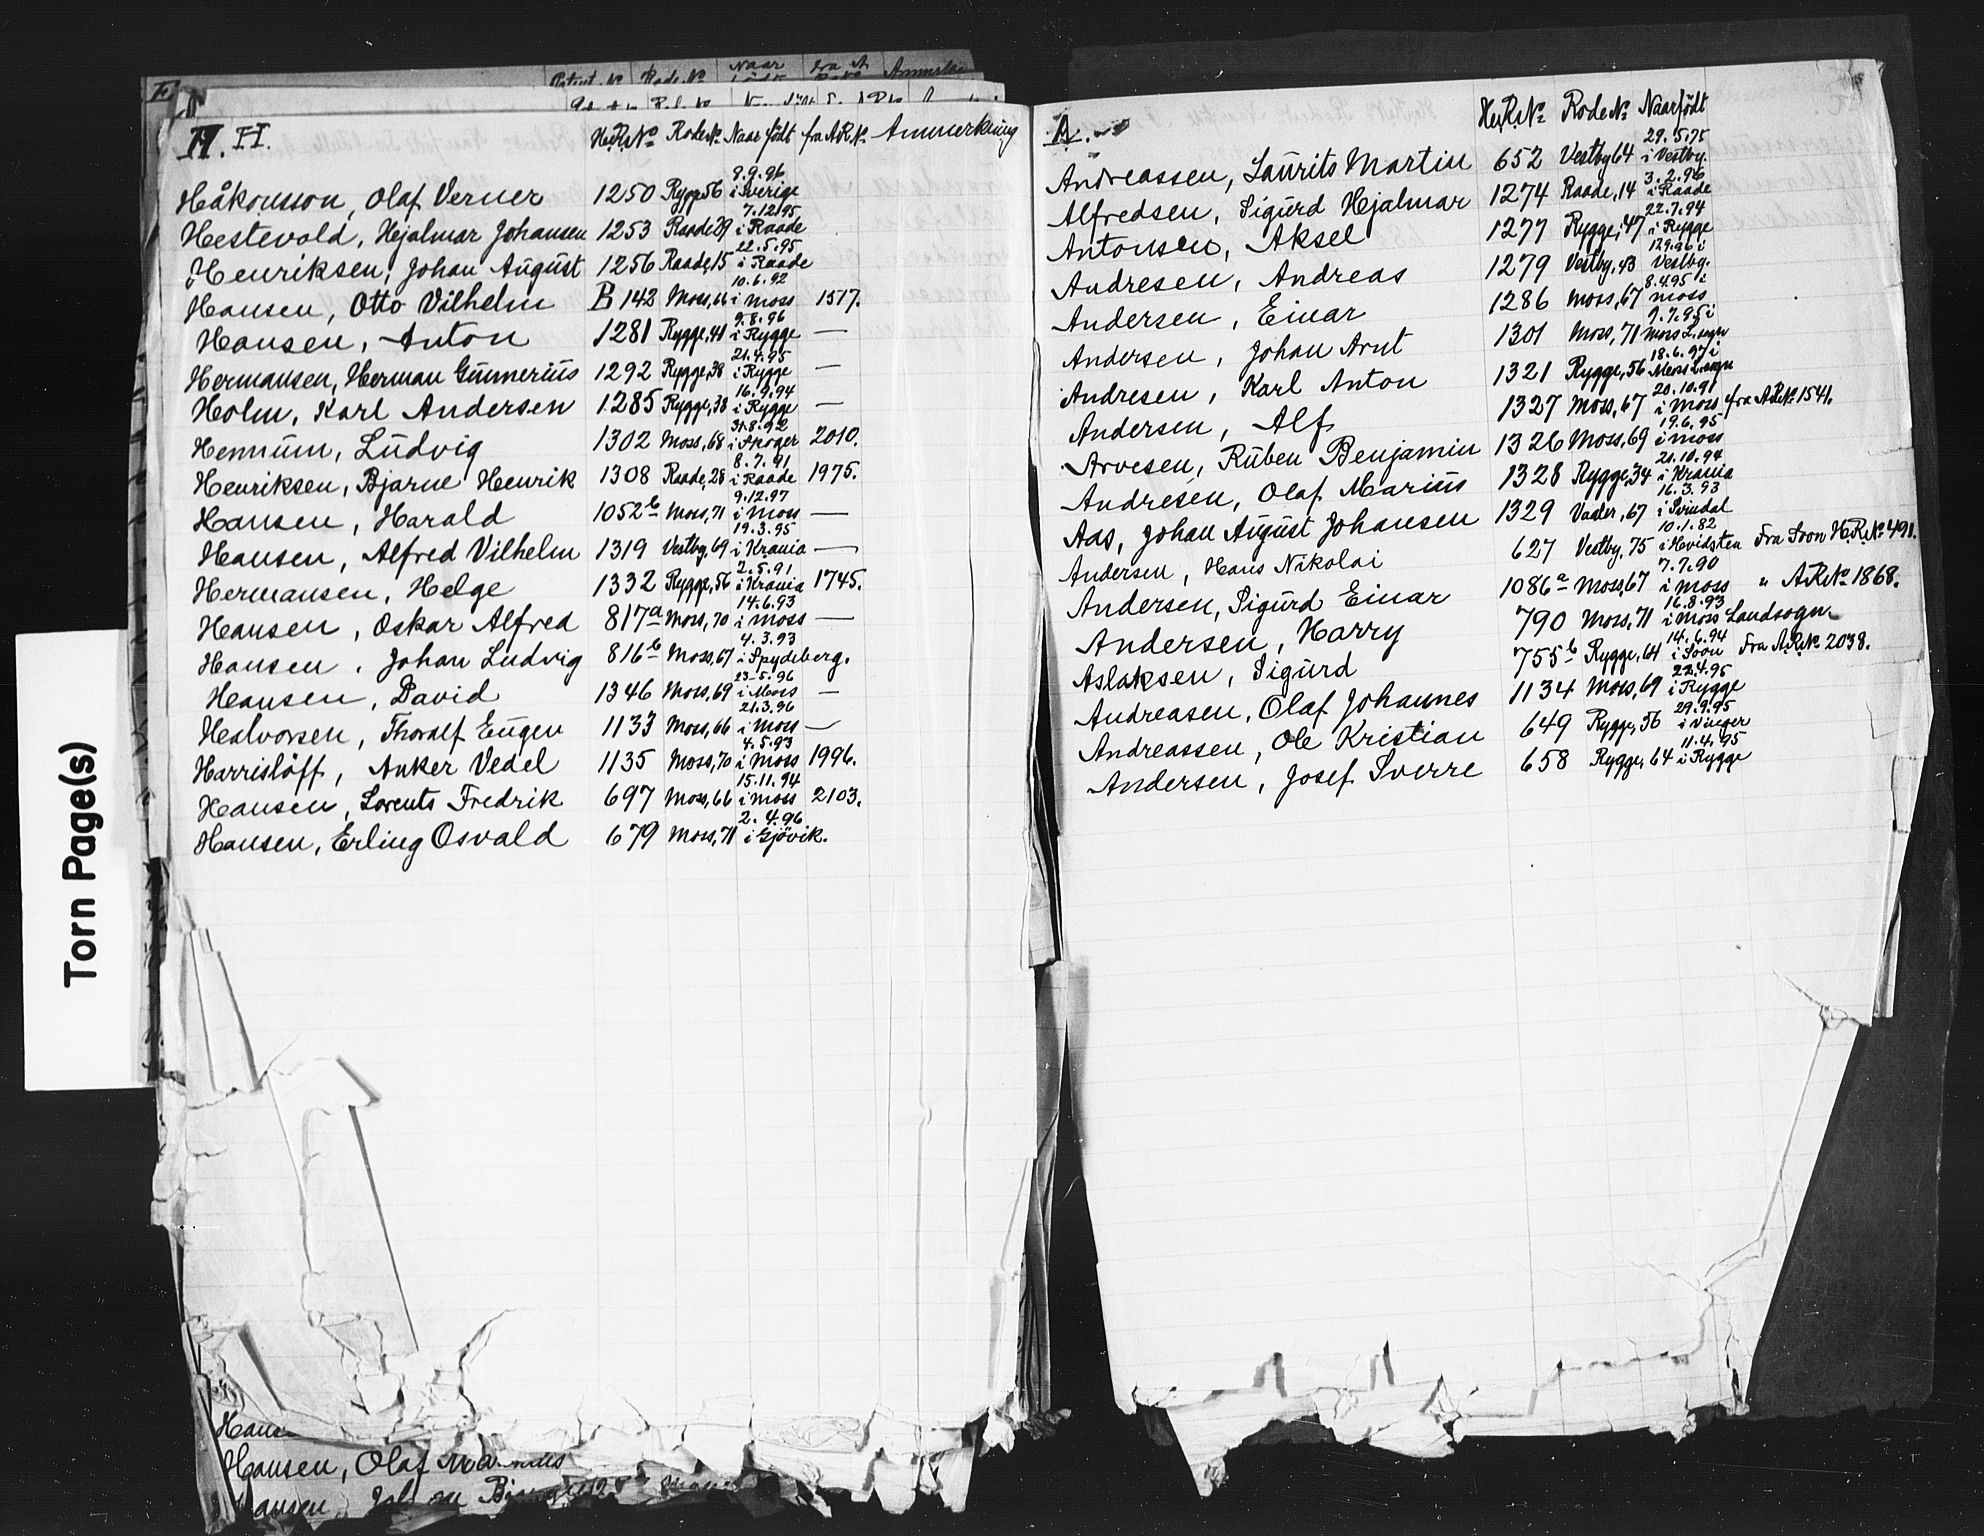 Torn Page(s)
H. H. H.R.№ Rode № Naar født fra A.R.№ Anmerkning
Håkonsson, Olaf Verner 1250 Rygge 56 8.9.96 i Sverige
Hestevold, Hjalmar Johansen 1253 Raade 29 7.12.95 i Raade
Henriksen, Johan August 1256 Raade, 15 22.5.95 i Raade
Hansen, Otto Vilhelm B 142 Moss, 66 10.6.92 i Moss 1517.
Hansen, Anton 1281 Rygge, 41 9.8.96 i Rygge —
Hermansen, Herman Gunnerius 1292 Rygge, 38 21.4.95 i Rygge —
Holm, Karl Andersen 1285 Rygge, 38 16.9.94 i Rygge —
Hennum, Ludvig 1302 Moss, 68 31.8.92 i Skoger 2010.
Henriksen, Bjarne Henrik 1308 Raade, 28 8.7.91 i Raade 1975.
Hansen, Harald 1052b Moss, 71 9.12.97 i Moss —
Hansen, Alfred Vilhelm 1319 Vestby, 69 19.3.95 i Krania —
Hermansen, Helge 1332 Rygge, 56 2.5.91 i Krania 1745.
Hansen, Oskar Alfred 817a Moss, 70 14.6.93 i Moss —
Hansen, Johan Ludvig 816b Moss, 67 4.3.93 i Spydeberg.
Hansen, David 1346 Moss, 69 23-5.96 i Moss —
Halvorsen, Thoralf Eugen 1133 Moss, 66 21.3.96 i Moss —
Harrisløff, Anker Vedel 1135 Moss, 70 4.5.93 i Moss 1996.
Hansen, Lorents Fredrik 697 Moss, 66 15.11.94 i Moss 2103.
Hansen, Erling Osvald 679 Moss, 71 2.4.96 i Gjøvik.
Hans
Hansen, Olaf
Hansen
A. H.R.№ Rode № Naar født
Andreassen, Laurits Martin 652 Vestby 64 29.5.75 i Vestby.
Alfredsen, Sigurd Hjalmar 1274 Raade, 14 3.2.96 i Raade
Antonsen, Aksel 1277 Rygge, 47 22.7.94 i Rygge
Andresen, Andreas 1279 Vestby, 43 12.9.96 i Vestby.
Andersen, Einar 1286 Moss, 67 8.4.95 i Moss
Andersen, Johan Arnt 1301 Moss, 71 9.7.95 i Moss L.sogn
Andresen, Karl Anton 1321 Rygge, 56 18.6.97 i Moss L.sogn
Andersen, Alf 1327 Moss, 67 20.10.91 i Moss fra A.R.№ 1541.
Arvesen, Ruben Benjamin 1326 Moss, 69 19.6.95 i Moss
Andresen, Olaf Marius 1328 Rygge, 34 21.10.94 i Krania
Aas, Johan August Johansen 1329 Vaaler, 67 16.3.93 i Svindal
Andersen, Hans Nikolai 627 Vestby, 75 10.1.82 i Hvidsten Fra Soon H.R.№ 491.
Andersen, Sigurd Einar 1086a Moss, 67 7.7.90 i Moss " A.R.№ 1868.
Andersen, Harry 790 Moss, 71 16.8.93 i Moss Landsogn
Aslaksen, Sigurd 755b Rygge, 64 14.6.94 i Soon Fra A.R.№ 2038.
Andreasen, Olaf Johannes 1134 Moss, 69 22.4.95 i Rygge
Andreassen, Ole Kristian 649 Rygge, 56 29.9.95 i Vinger
Andersen, Josef Sverre 658 Rygge, 64 11.4.95 i Rygge